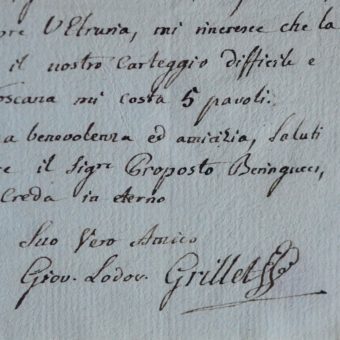 pre l'Etruria, mi rincresce che la
il nostro Carteggio difficile e
Toscana mi costa 5 pavoli.
a benevolenza ed amicizia, Saluti
e il Sigre Proposto Beringucci,
Creda in eterno
Suo Vero Amico
Giov. Lodov. Grillet